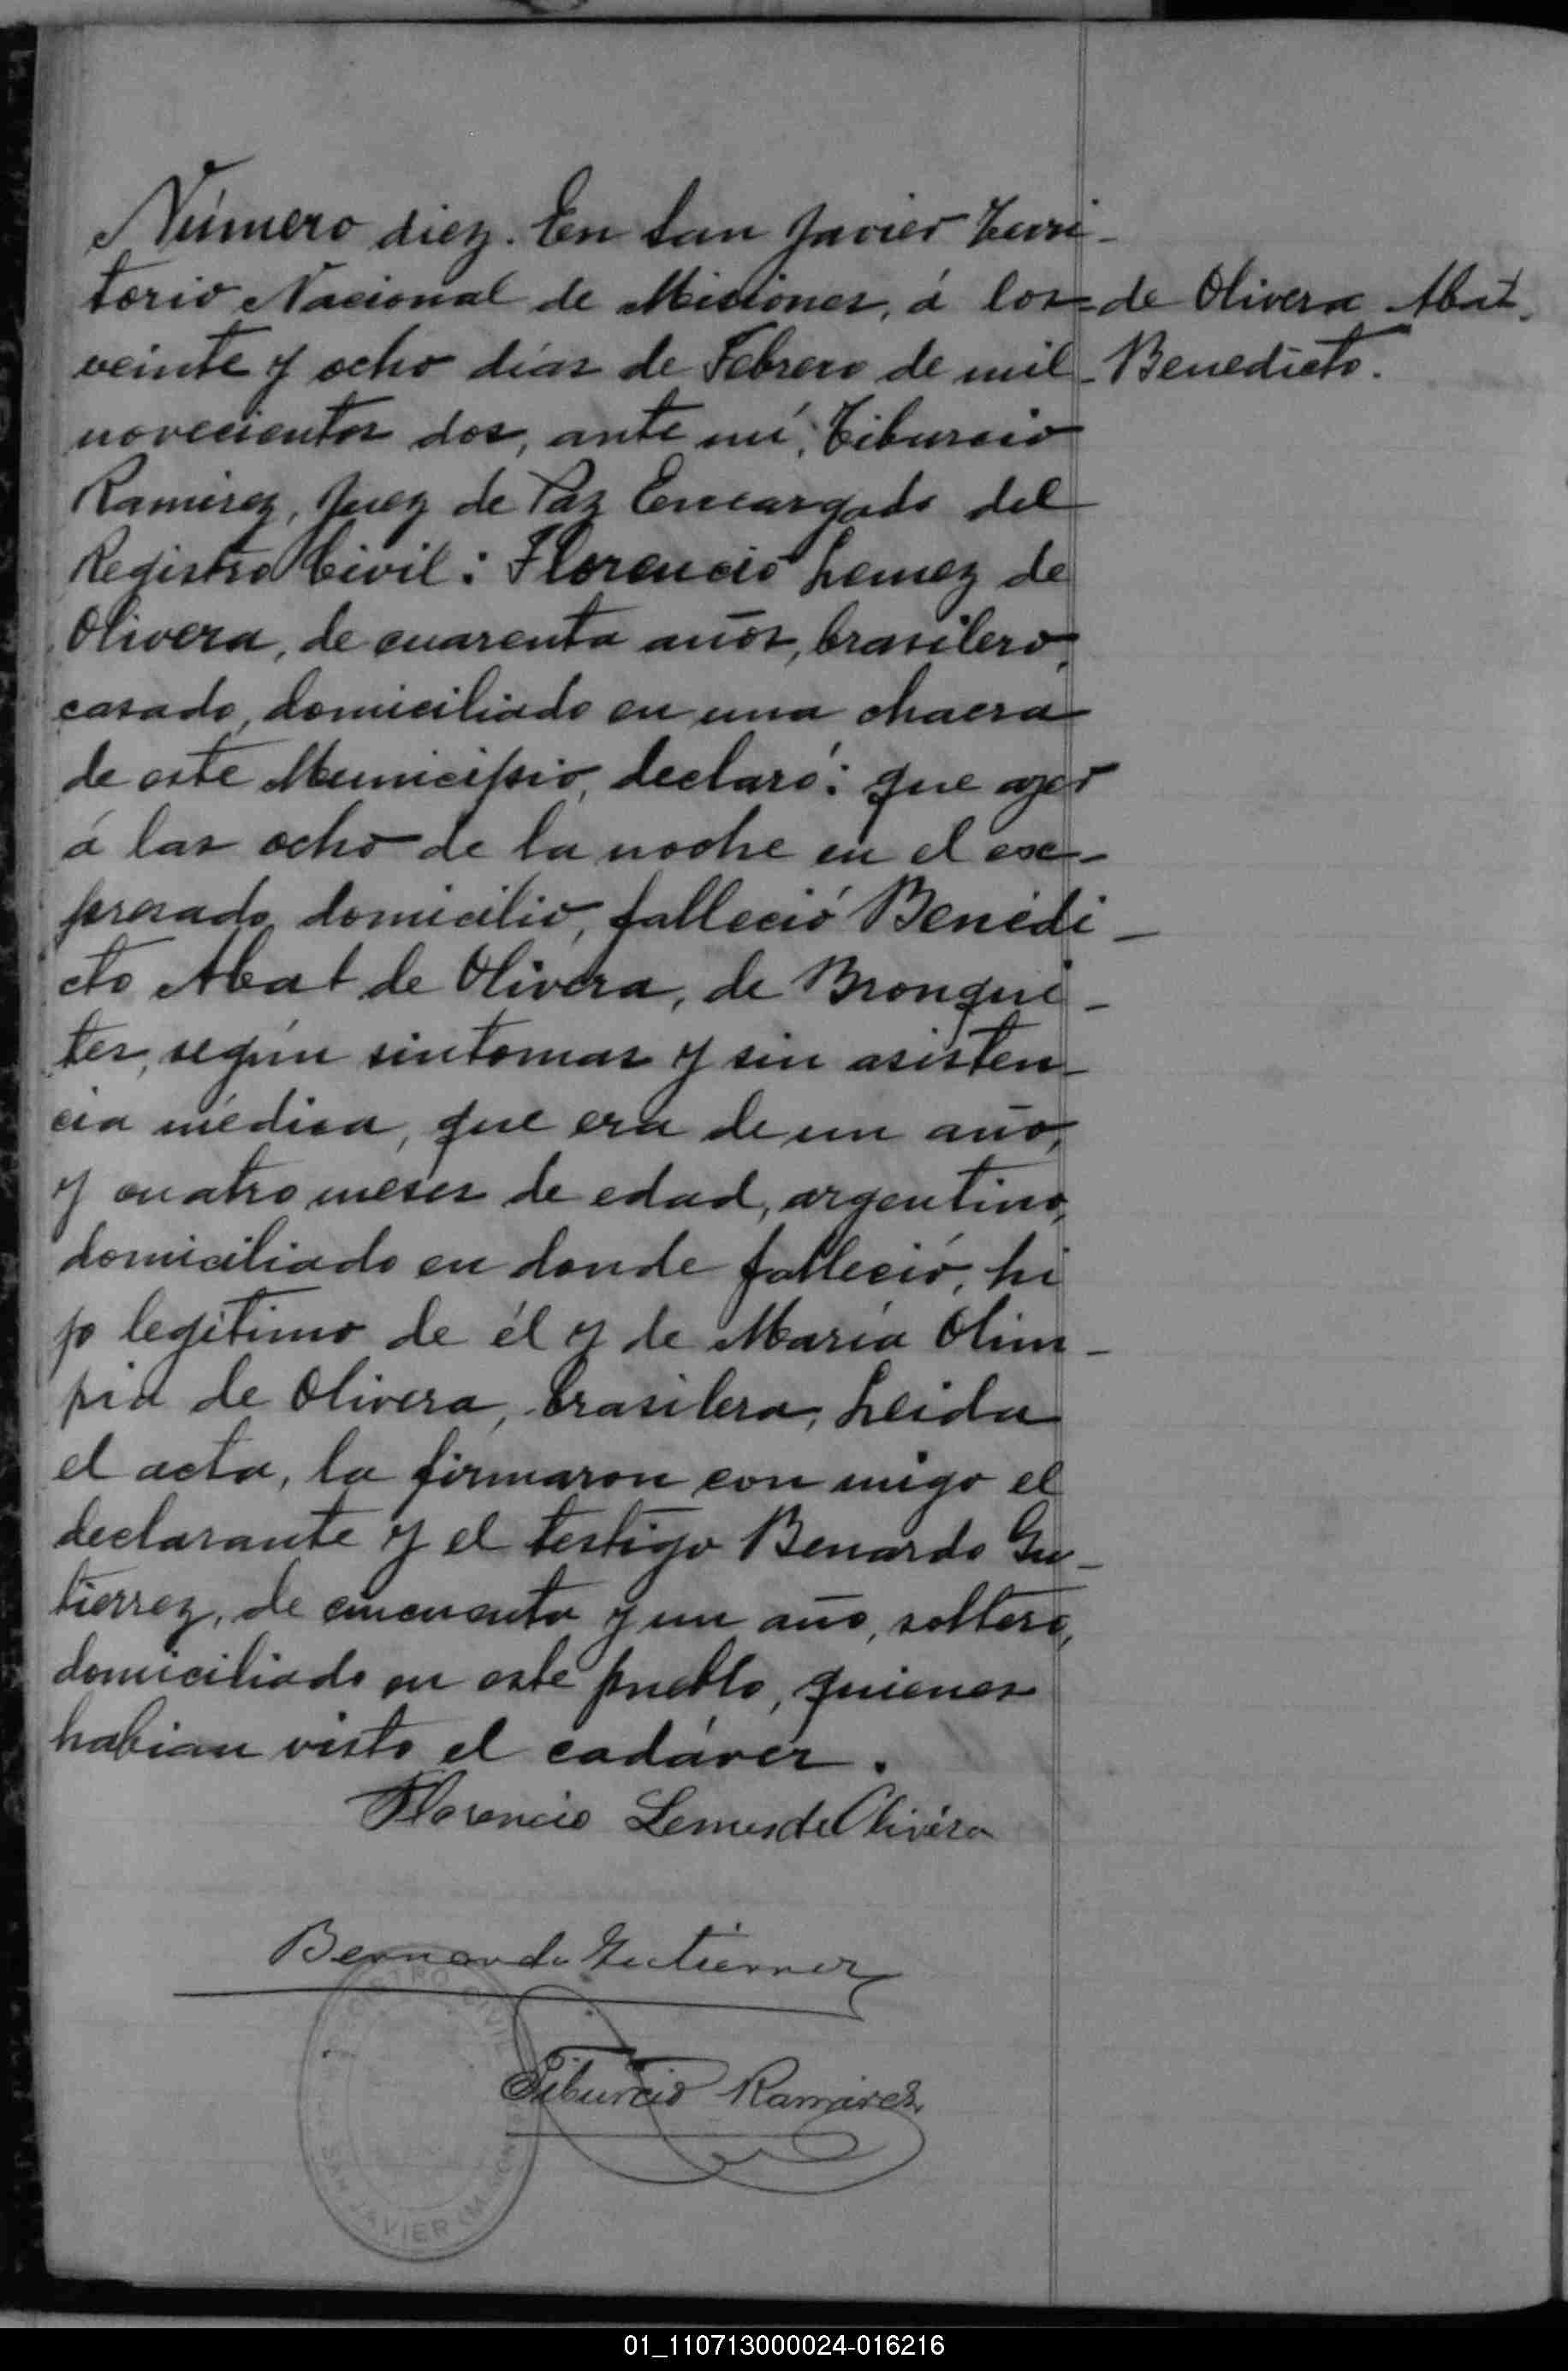 Número diez. En San Javier Terri-
torio Nacional de Misiones, á los
de Olivera Abat
veinte y ocho días de Febrero de mil
Benedicto.
novecientos dos, ante mí, Tiburcio
Ramirez, Juez de Paz Encargado del
Registro Civil: Florencio Lemez de
Olivera, de cuarenta años, brasilero,
casado, domiciliado en una chacra
de este Municipio, declaró: que ayer
á las ocho de la noche en el ex-
presado domicilio, falleció Benedi-
cto Abat de Olivera, de Bronqui-
tes, según sintomas y sin asisten-
cia médica, que era de un año,
y cuatro meses de edad, argentino,
domiciliado en donde falleció, hi
jo legítimo de él y de María Olim-
pia de Olivera, brasilera, Leida
el acta, la firmaron con migo el
declarante y el testigo Benardo Gu-
tierrez, de cincuenta y un año, soltero,
domiciliado en este pueblo, quienes
habian visto el cadáver.
Florencio Lemes de Olivera
Bernardo Gutierrez
Tiburcio Ramirez
REGISTRO CIVIL
SAN JAVIER
01_110713000024-016216